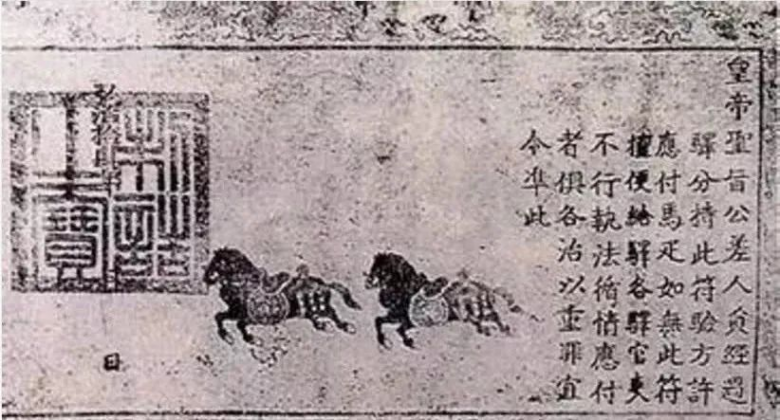 皇帝聖旨公差人貟經過
驛分持此符驗方許
應付馬疋如無此符
擅便給驛各驛官吏
不行執法循情應付
者俱各治以重罪宜
令準此
制誥之寶
日